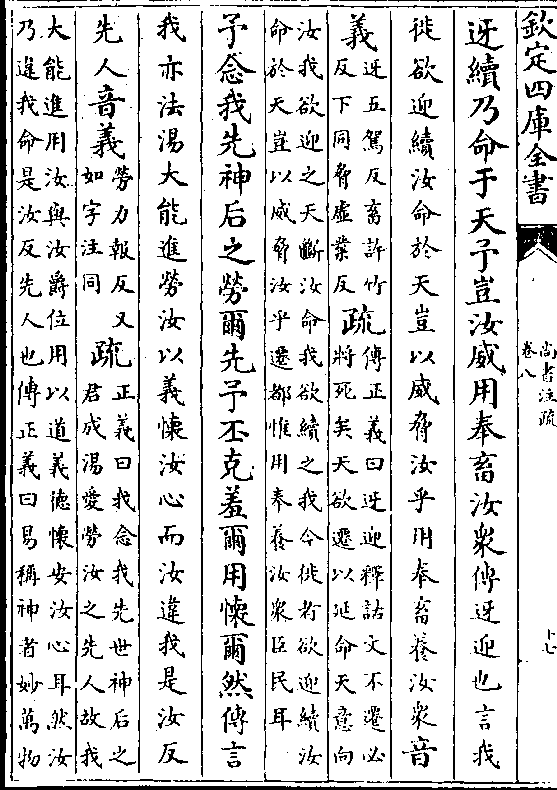 欽定四庫全書
尚書注疏
卷八
十七
迓續乃命于天予豈汝威用奉畜汝衆傳迓迎也言我
徙欲迎續汝命於天豈以威脅汝乎用奉畜養汝衆音
義迓五駕反畜許竹
反下同脅虛業反
疏傳正義曰迓迎釋詁文不遷必
將死矣天欲遷以延命天意向
汝我欲迎之天斷汝命我欲續之我今徙者欲迎續汝
命於天豈以威脅汝乎遷都惟用奉養汝衆臣民耳
予念我先神后之勞爾先予丕克羞爾用懷爾然傳言
我亦法湯大能進勞汝以義懷汝心而汝違我是汝反
先人音義勞力報反又
如字注同
疏正義曰我念我先世神后之
君成湯愛勞汝之先人故我
大能進用汝與汝爵位用以道義德懷安汝心耳然汝
乃違我命是汝反先人也傳正義曰易稱神者妙萬物